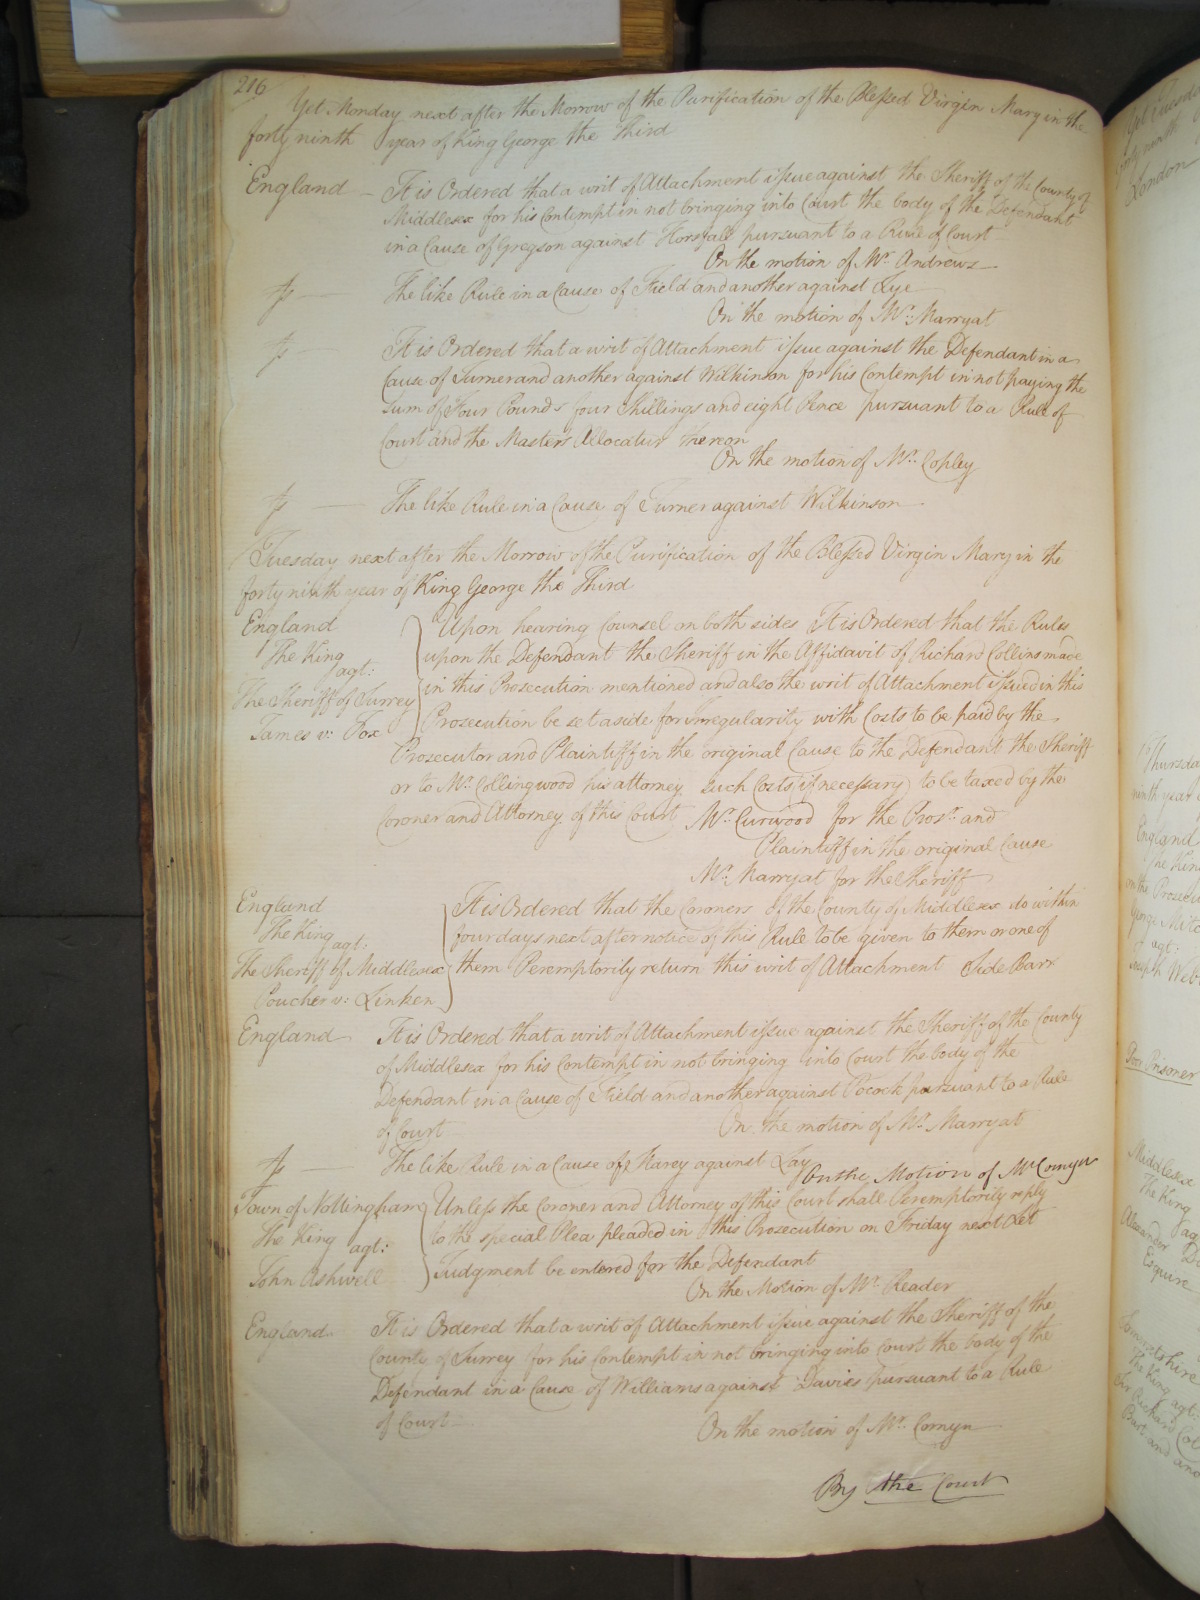 216
Yet Monday next after the Morrow of the Purification of the Blessed Virgin Mary in the
forty ninth year of King George the Third
England It is Ordered that a writ of Attachment issue against the Sheriff of the County of
Middlesex for his Contempt in not bringing into Court the body of the Defendant
in a Cause of Gregson against Horsfall pursuant to a Rule of Court
On the motion of Mr. Andrews
The like Rule in a Cause of Field and another against Lye
On the motion of Mr. Marryat
It is Ordered that a writ of Attachment issue against the Defendant in a
Cause of Turner and another against Wilkinson for his Contempt in not paying the
Sum of Four Pounds four Shillings and eight Pence pursuant to a Rule of
Court and the Masters Allocatur thereon
On the motion of Mr. Copley
The like Rule in a Cause of Turner against Wilkinson
Tuesday next after the Morrow of the Purification of the Blessed Virgin Mary in the
forty ninth year of King George the Third
England
The King
agt:
The Sheriff of Surrey
James v: Fox
Upon hearing Counsel on both sides It is Ordered that the Rules
upon the Defendant the Sheriff in the Affidavit of Richard Collins made
in this Prosecution mentioned and also the writ of Attachment issued in this
Prosecution be set aside for Irregularity with Costs to be paid by the
Prosecutor and Plaintiff in the original Cause to the Defendant the Sheriff
or to Mr. Collingwood his attorney such Costs (if necessary) to be taxed by the
Coroner and Attorney of this Court Mr. Curwood for the Prosr. and
Plaintiff in the original Cause
Mr. Marryat for the Sheriff
England
The King
agt:
The Sheriff of Middlesex
Poucher v: Linken
It is Ordered that the Coroners of the County of Middlesex do within
four days next after notice of this Rule to be given to them or one of
them Peremptorily return this writ of Attachment Side Barr
England It is Ordered that a writ of Attachment issue against the Sheriff of the County
of Middlesex for his Contempt in not bringing into Court the body of the
Defendant in a Cause of Field and another against Pocock pursuant to a Rule
of Court On the motion of Mr. Marryat
The like Rule in a Cause of Harey against Lay On the Motion of Mr Comyn
Town of Nottingham
The King
agt:
John Ashwell
Unless the Coroner and Attorney of this Court shall Peremptorily reply
to the special Plea pleaded in this Prosecution on Friday next Let
Judgment be entered for the Defendant
On the Motion of Mr. Reader
England It is Ordered that a writ of Attachment issue against the Sheriff of the
County of Surrey for his Contempt in not bringing into Court the body of the
Defendant in a Cause of Williams against Davies pursuant to a Rule
of Court
On the motion of Mr. Comyn
By the Court
London
Thursda
ninth year
England
The King
George Mitc
agt:
Joseph Web
Poor Prisoner
Middlesex
The King
Alexander
Esquire
The King agt: